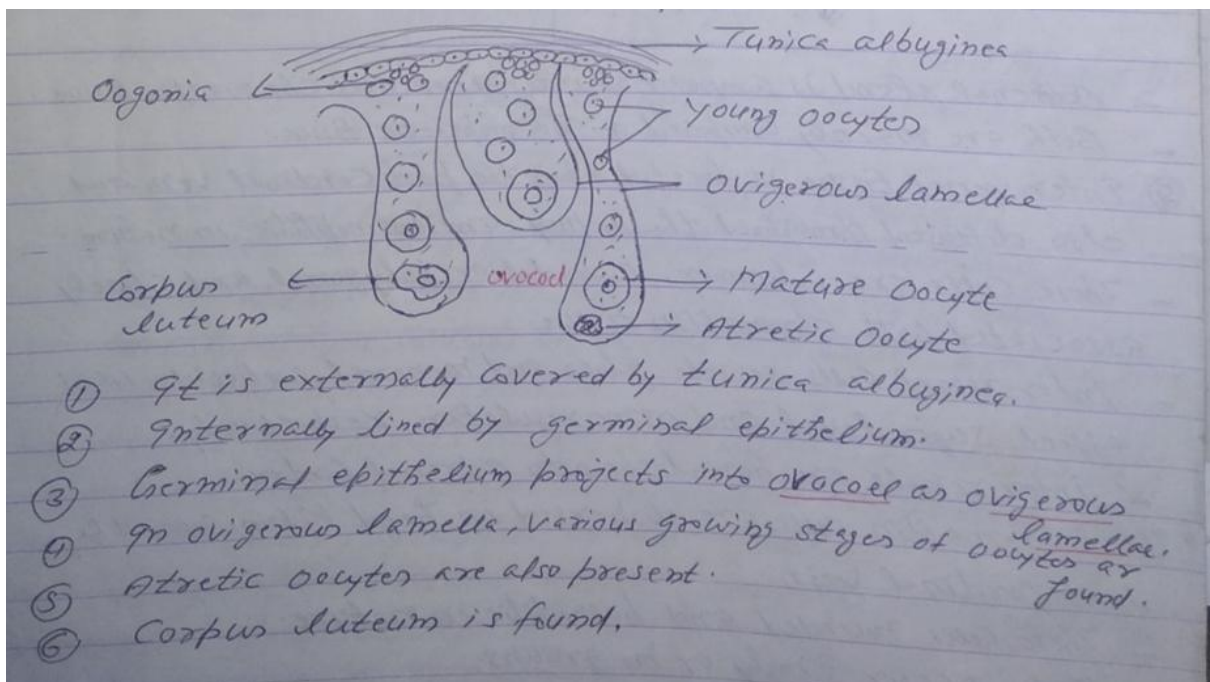 Tunica albuginea
Oogonia
young oocytes
ovigerous lamellae
Corpus luteum
ovocoel
Mature Oocyte
Atretic Oocyte
① It is externally covered by tunica albuginea.
② Internally lined by germinal epithelium.
③ Germinal epithelium projects into ovocoel as ovigerous lamellae.
④ In ovigerous lamella, various growing stages of oocytes are found.
⑤ Atretic oocytes are also present.
⑥ Corpus luteum is found.